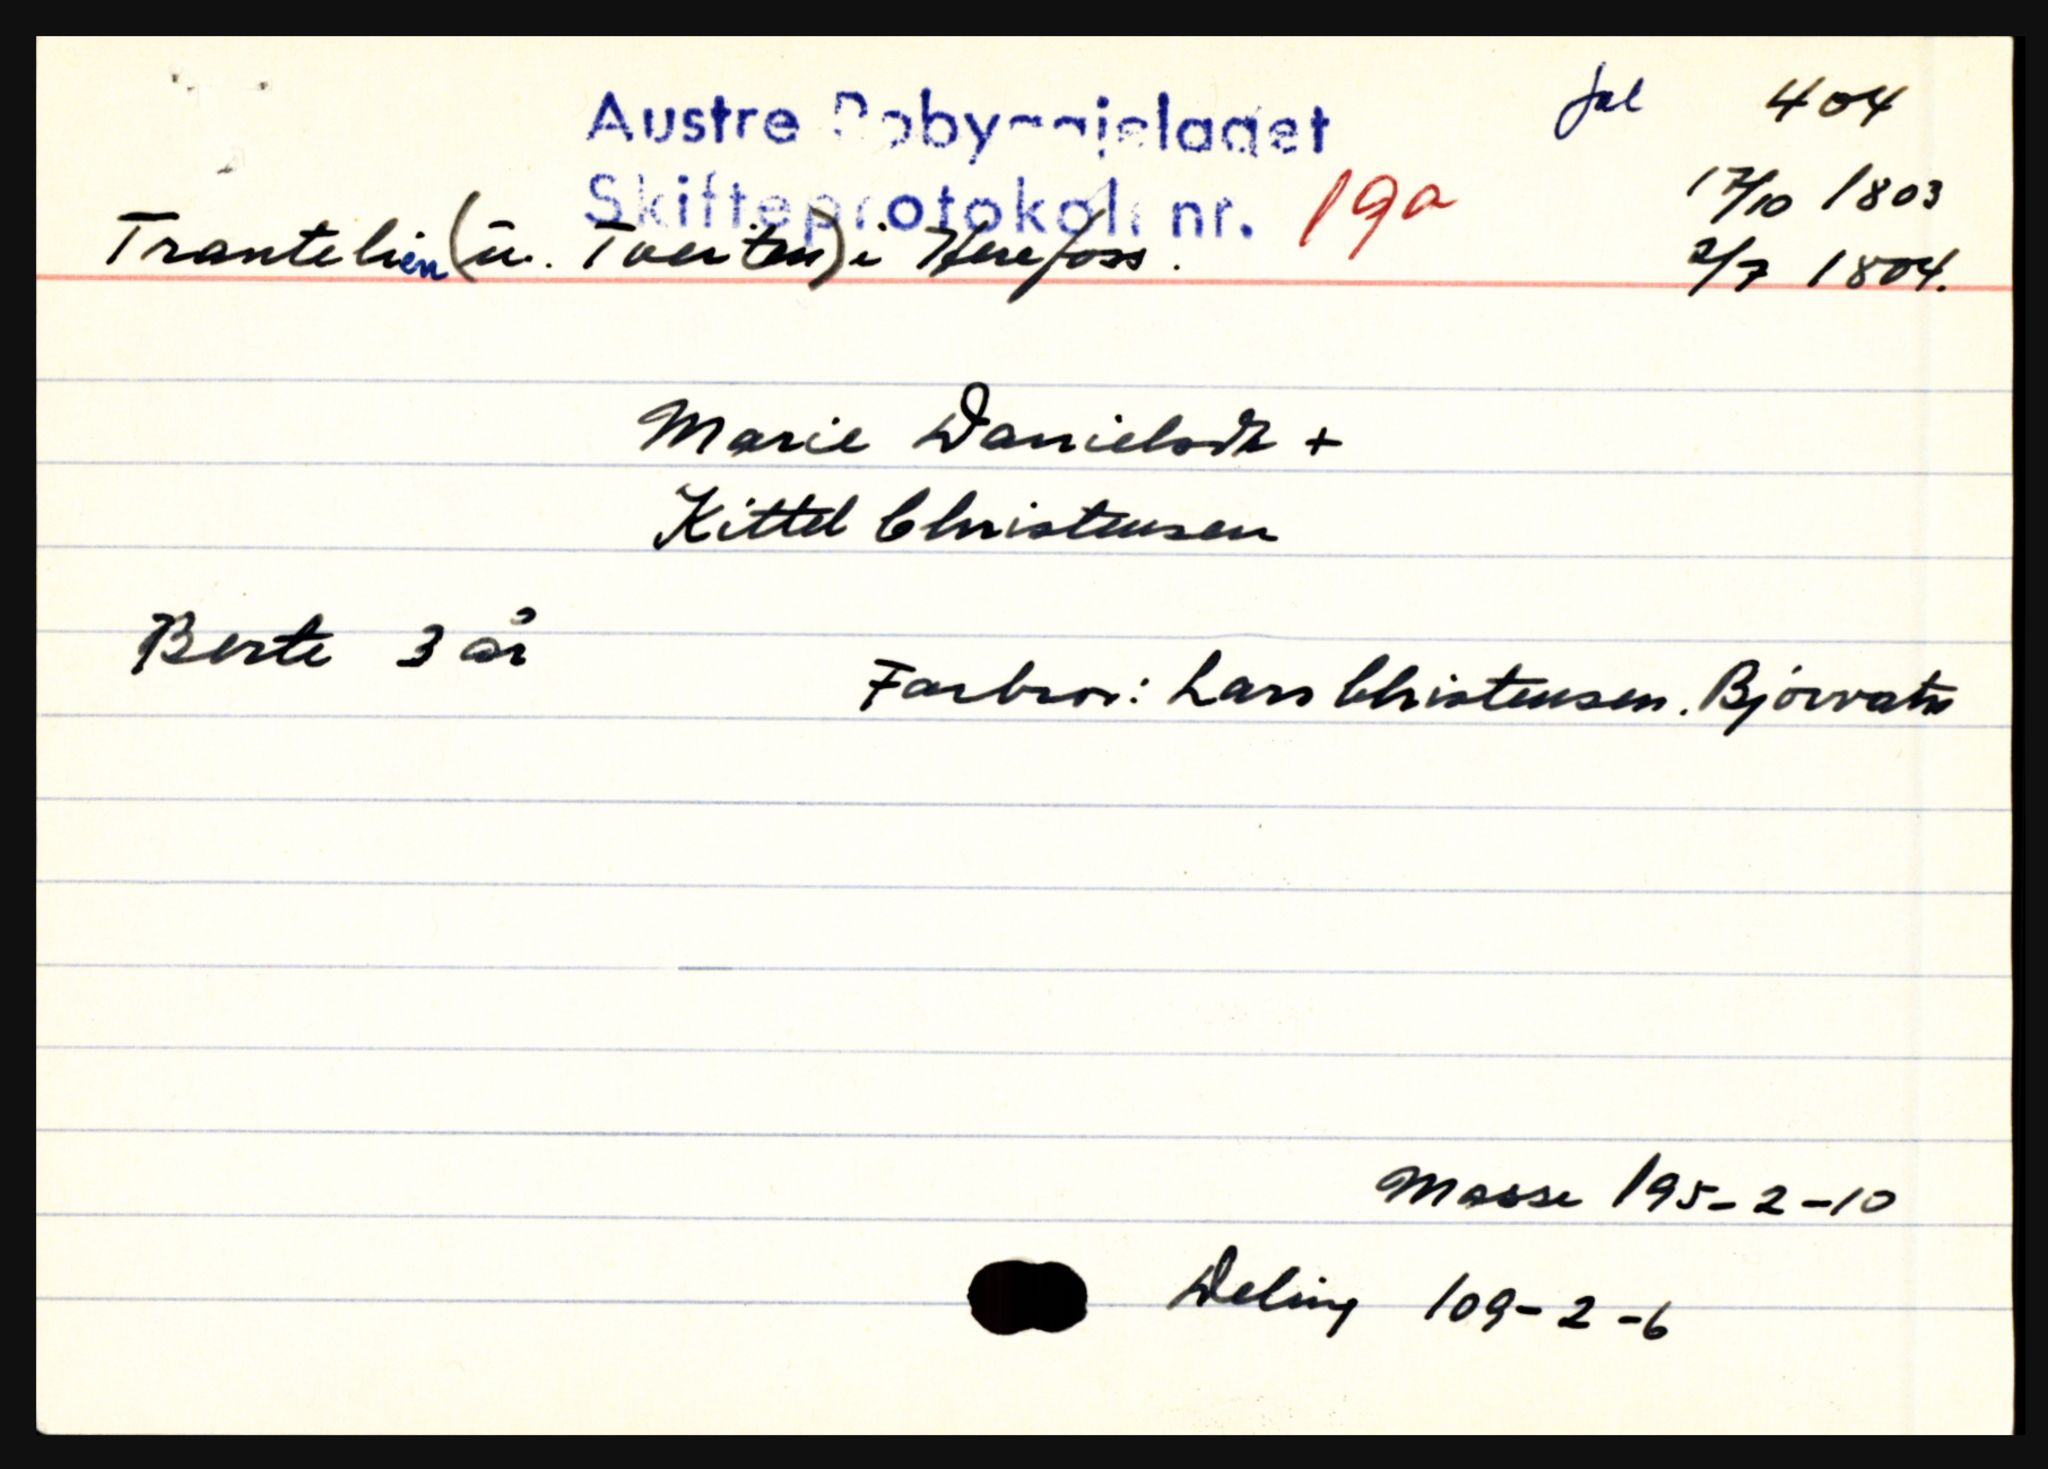 Austre Robyggjelaget
fol 404
Skifteprotokoll nr. 19a
17/10 1803
Trantelien (u. Tveiten) i Herefoss.
2/7 1804.
Marie Danielsdtr +
Kittel Christensen
Berte 3 år
Farbror: Lars Christensen. Bjorvatn
Masse 195-2-10
Deling 109-2-6